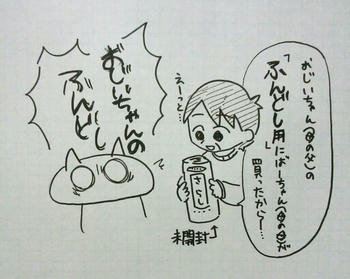 おじいちゃん(母の父)の
「ふんどし用」
にばーちゃん(母の母)が
買ったから〜…
えーっと…
さらし
未開封
おじいちゃんの
ふんどし